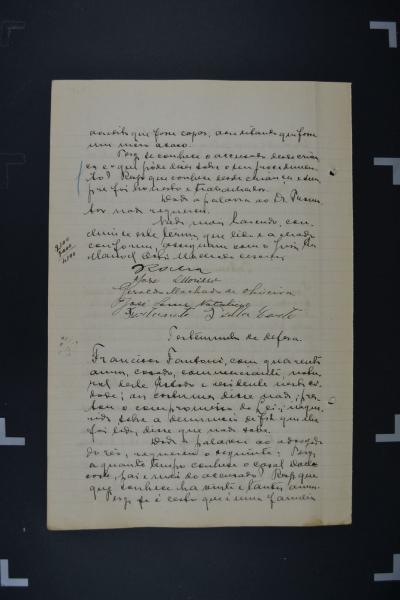 que fosse capaz, acreditando que fosse
um mero acaso.
Perg. se conhece o accusado desde crian
ça e o que pode dizer sobre o seu procedimen
to? Resp. que conhece desde criança e sem
pre foi honesto e trabalhador.
Dada a palavra ao Dr. Promo
tor nada requereu.
Nada mais havendo, con
clui-se este termo, que lido e achado
conforme, assignam com o Juiz. Eu
Manoel Machado
Rocha
Geraldo Machado de Oliveira
José
Testemunha de defesa.
Francisco Fantoni, com quarenta
annos, casado, commerciante, natu
ral deste Estado e residente nesta ci
dade; aos costumes disse nada; pres
tou o compromisso da lei; inquiri
da sobre a denuncia de fls que lhe
foi lida, disse que nada sabe.
Dada a palavra ao advogado
do réo, requereu o seguinte: Perg.
a quanto tempo conhece o casal
pai e mãi do accusado? Resp. que
que conhece ha vinte e tantos annos.
Perg. se é certo que é uma familia